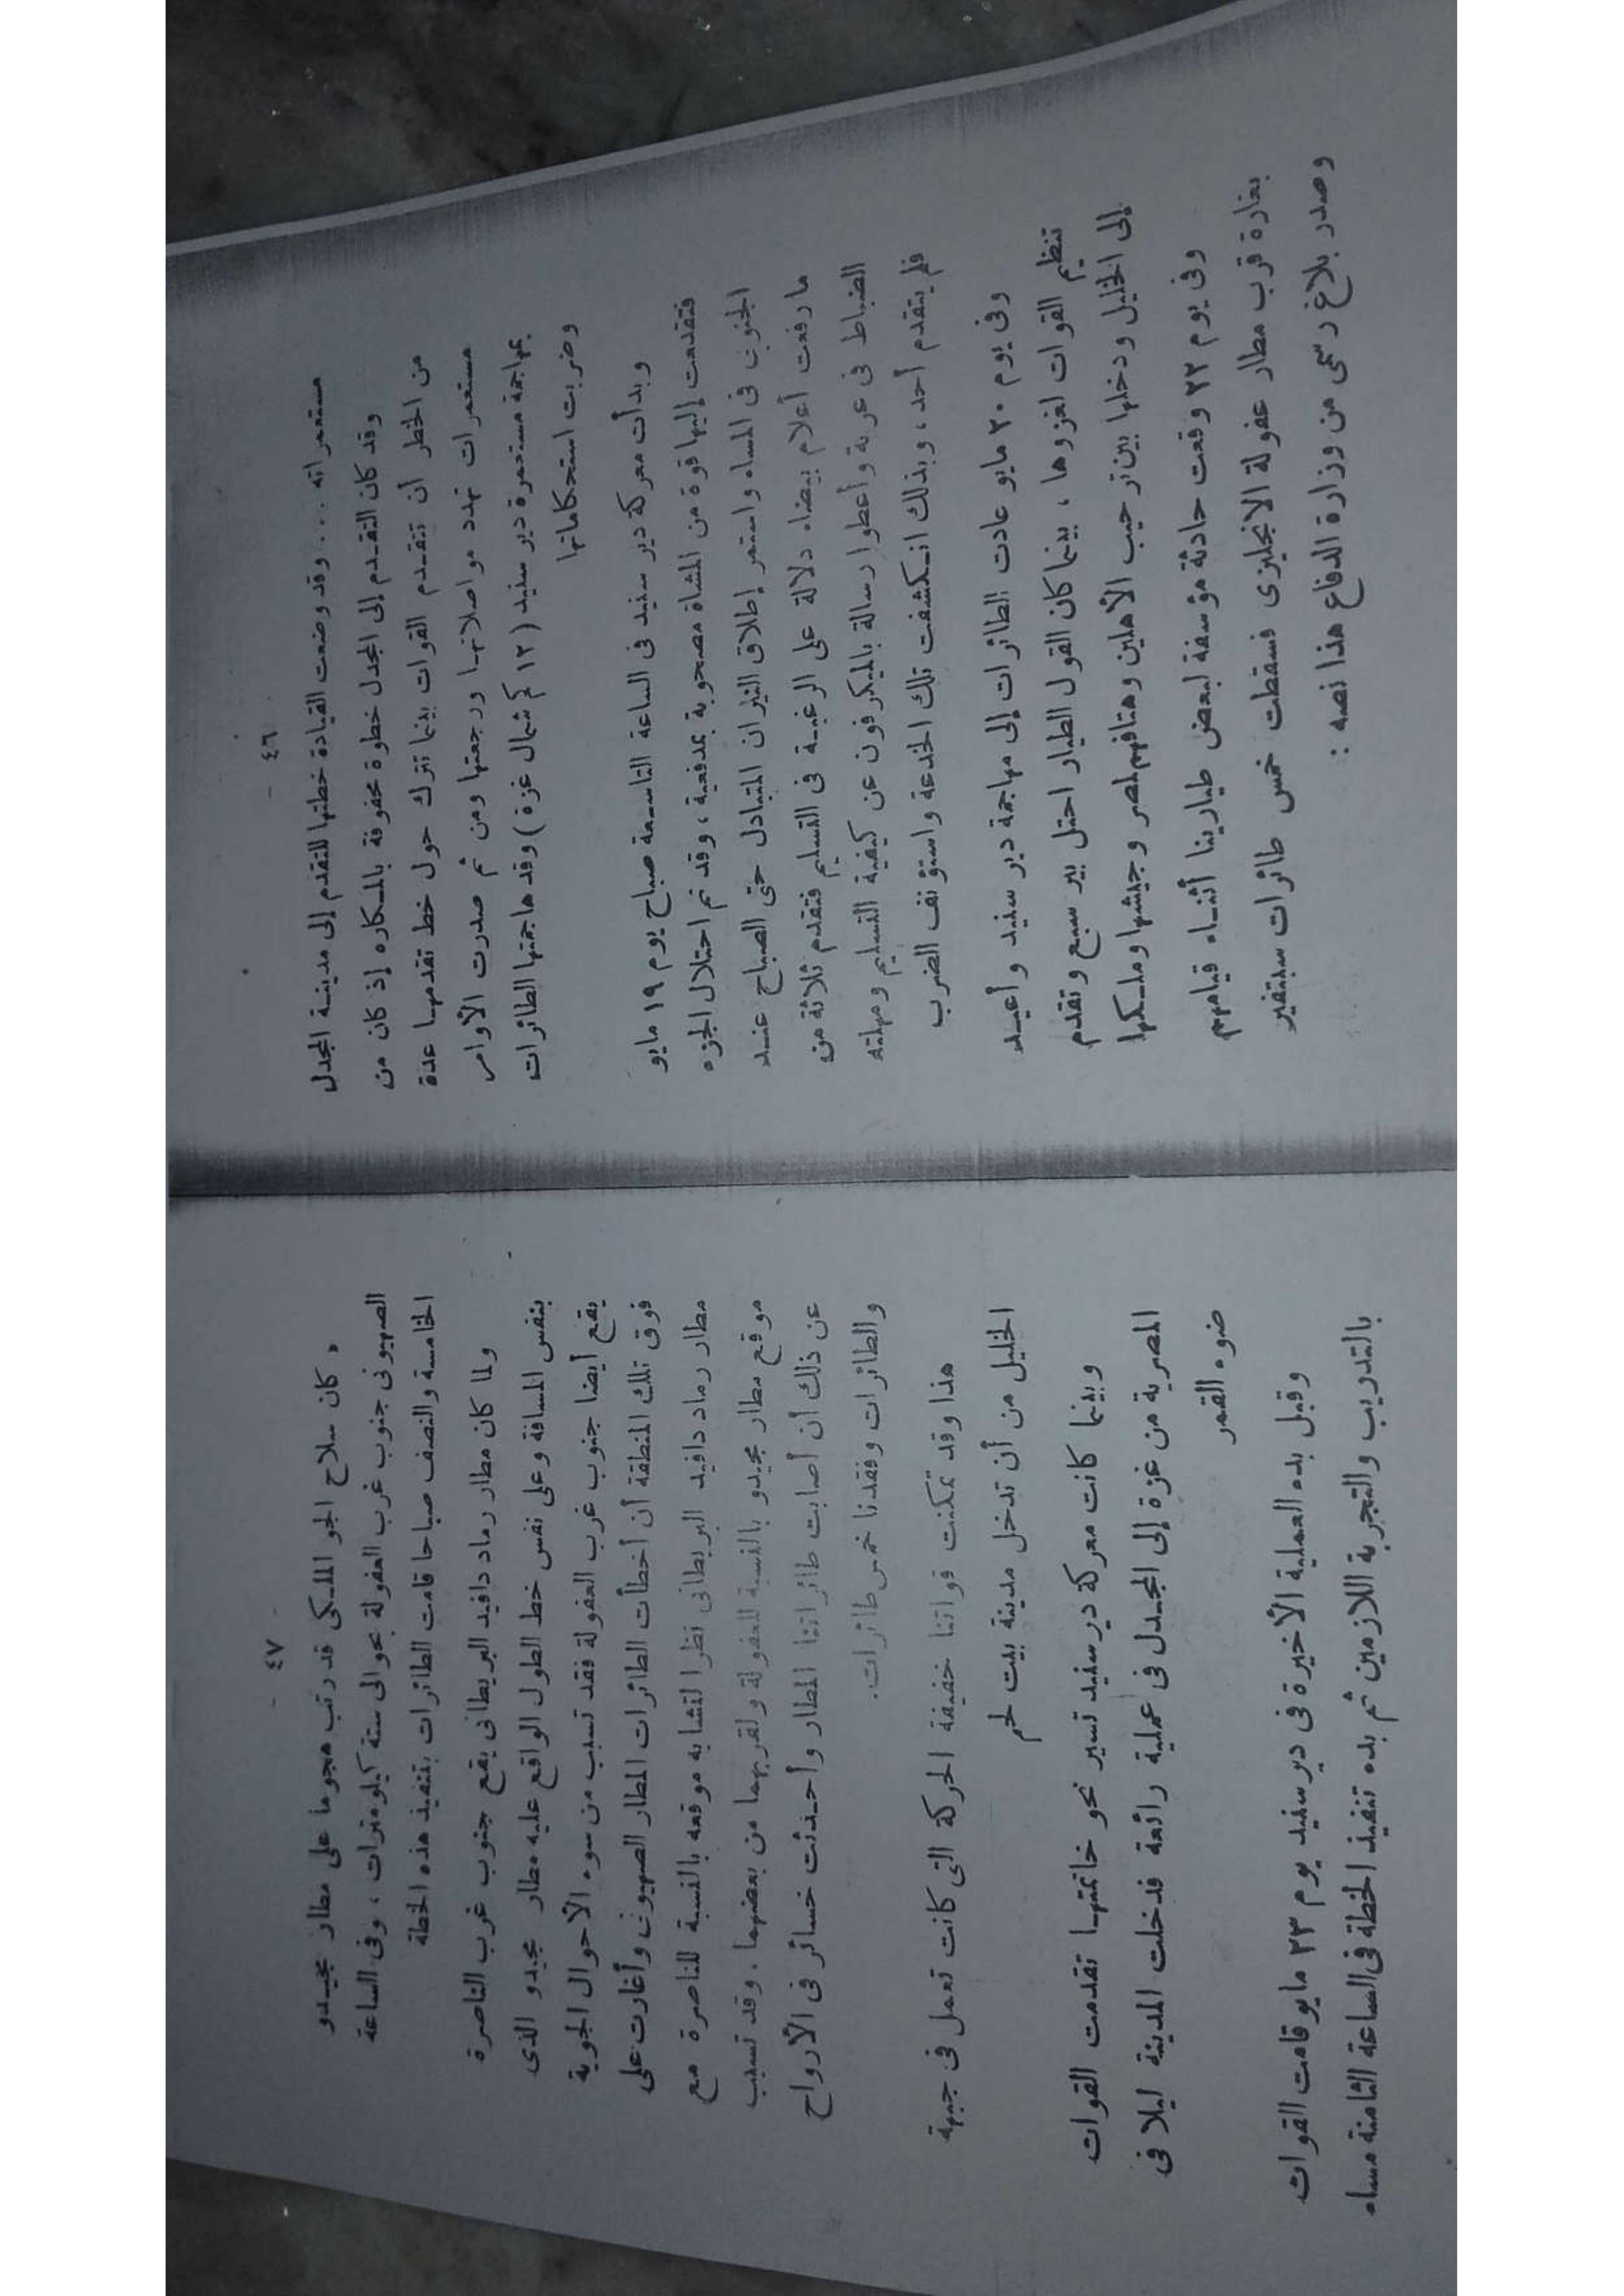 - ٤٦ -
مستعمراته .... وقد وضعت القيادة خطتها للتقدم إلى مدينة المجدل
وقد كان التقدم إلى المجدل خطوة محفوفة بالمكاره إذ كان من
من الخطر أن تتقدم القوات بينما تترك حول خط تقدمها عدة
مستعمرات تهدد مواصلاتها ورجعتها ومن ثم صدرت الأوامر
بمهاجمة مستعمرة دير سنيد (١٢ كم شمال غزة) وقد هاجمتها الطائرات
وضربت استحكاماتها
وبدأت معركة دير سنيد فى الساعة التاسعة صباح يوم ١٩ مايو
فتقدمت إليها قوة من المشاة مصحوبة بمدفعية، وقد تم احتلال الجزء
الجنوبى فى المساء واستمر إطلاق النيران المتبادل حتى الصباح عند
ما رفعت أعلام بيضاء دلالة على الرغبة فى التسليم فتقدم ثلاثة من
الضباط فى عربة وأعطوا رسالة بالميكرفون عن كيفية التسليم ومهلته
فلم يتقدم أحد، وبذلك انكشفت تلك الخدعة واستؤنف الضرب
وفى يوم ٢٠ مايو عادت الطائرات إلى مهاجمة دير سنيد وأعيد
تنظيم القوات لغزوها، بينما كان القول الطيار احتل بير سبع وتقدم
إلى الخليل ودخلها بين ترحيب الأهلين وهتافهم لمصر وجيشها ومليكها
وفى يوم ٢٢ وقعت حادثة مؤسفة لبعض طيارينا أثناء قيامهم
بغارة قرب مطار عفولة الانجليزى فسقطت خمس طائرات سبتفير
وصدر بلاغ رسمى من وزارة الدفاع هذا نصه :
- ٤٧ -
« كان سلاح الجو الملكى قد رتب هجوما على مطار مجيدو
الصهيونى جنوب غرب العفولة بحوالى ستة كيلومترات، وفى الساعة
الخامسة والنصف صباحا قامت الطائرات بتنفيذ هذه الخطة
ولما كان مطار رماد دافيد البريطانى يقع جنوب غرب الناصرة
بنفس المسافة وعلى نفس خط الطول الواقع عليه مطار مجيدو الذى
يقع أيضا جنوب غرب العفولة فقد تسبب من سوء الأحوال الجوية
فوق تلك المنطقة أن أخطأت الطائرات المطار الصهيونى وأغارت على
مطار رماد دافيد البريطانى نظرا لتشابه موقعه بالنسبة للناصرة مع
موقع مطار مجيدو بالنسبة للعفولة ولقربهما من بعضهما. وقد تسبب
عن ذلك أن أصابت طائراتنا المطار وأحدثت خسائر فى الأرواح
والطائرات وفقدنا خمس طائرات.
هذا وقد تمكنت قواتنا خفيفة الحركة التى كانت تعمل فى جبهة
الخليل من أن تدخل مدينة بيت لحم
وبينما كانت معركة دير سنيد تسير نحو خاتمتها تقدمت القوات
المصرية من غزة إلى المجدل فى عملية رائعة فدخلت المدينة ليلا فى
ضوء القمر
وقبل بدء العملية الأخيرة فى دير سنيد يوم ٢٣ مايو قامت القوات
بالتدريب والتجربة اللازمين ثم بدء تنفيذ الخطة فى الساعة الثامنة مساء